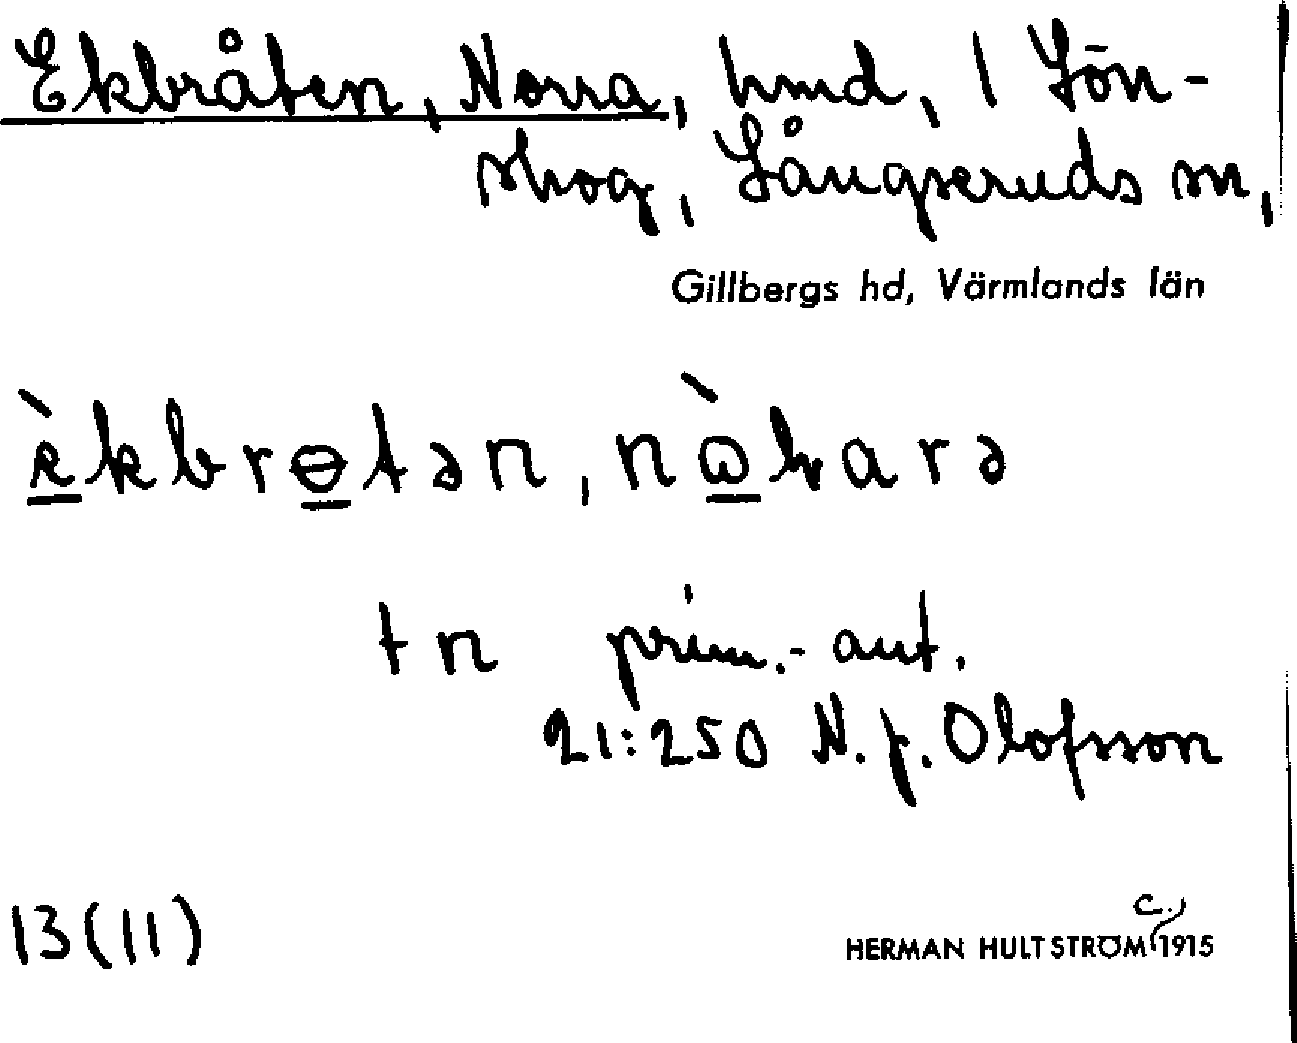 Ekbråten, Norra, hmd, 1 Lön-
skog, Långseruds sn,
Gillbergs hd, Värmlands län
ὲkbrɵtən, nὼharə
tn prim.-aut.
21:250 N. J. Olofsson
13(11)
c.
HERMAN HULTSTRÖM 1915